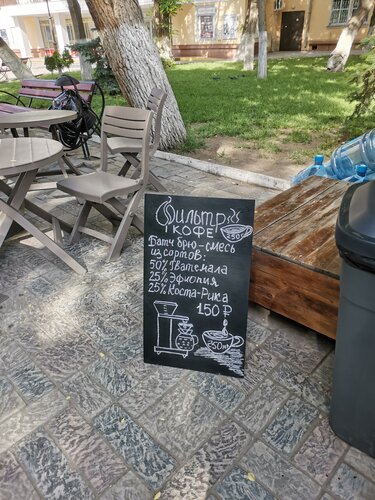 Фильтр
кофе
250
Батч брю-смесь
из сортов:
50% Гватемала
25% Эфиопия
25% Коста-Рика
150 ₽
250 мл